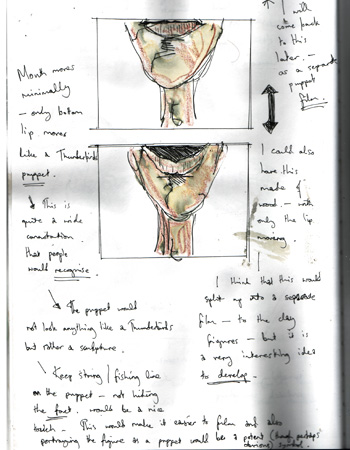 I will
come back
to this
later. —
as a separate
puppet
film.
Mouth moves
minimally
— only bottom
lip moves
like a Thunderbirds
puppet.
This is
quite a wide
connotation
that people
would recognise.
I could also
have this
made of
wood — with
only the lip
moving.
The puppet would
not look anything like a Thunderbirds
but rather a sculpture.
I think that this would
split up into a separate
film — to the clay
figures — but it is
a very interesting idea
to develop.
Keep string / fishing line
on the puppet — not hiding
the fact. would be a nice
touch — This would make it easier to film and also
portraying the figure as a puppet would be a potent (though perhaps
obvious) symbol.